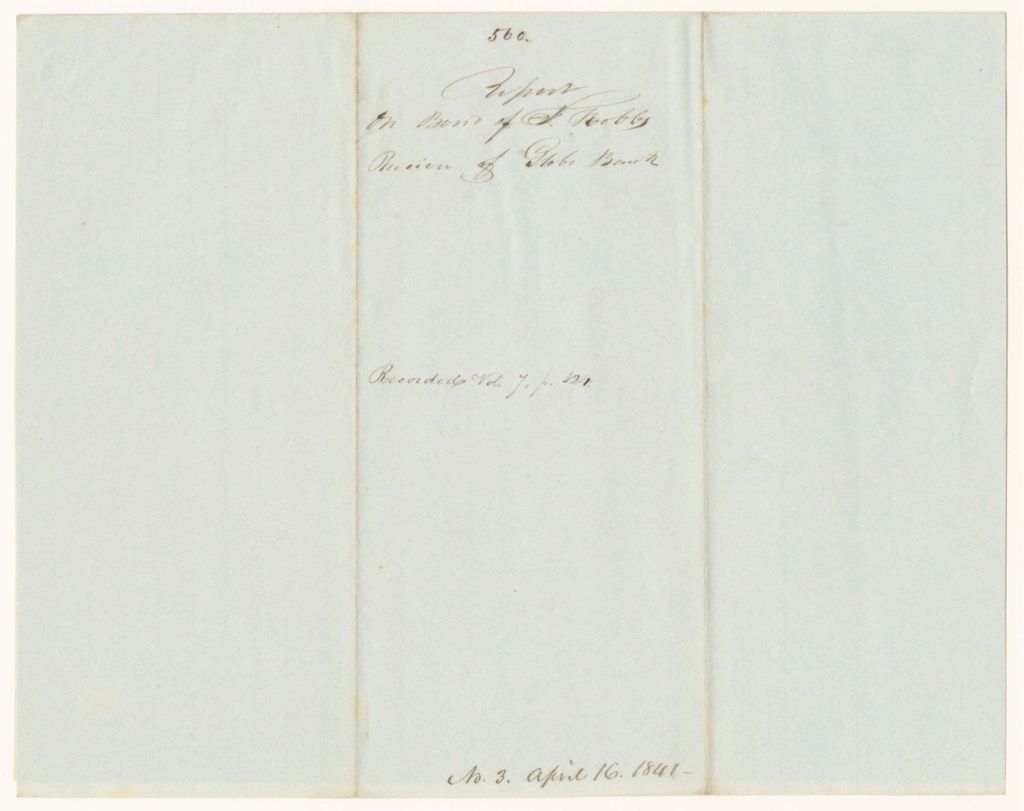 560.
Report
On Bond of F. Hobbs
Receiver of Globe Bank
Recorded Vol. 7, p. 324
No. 3. April 16. 1841-